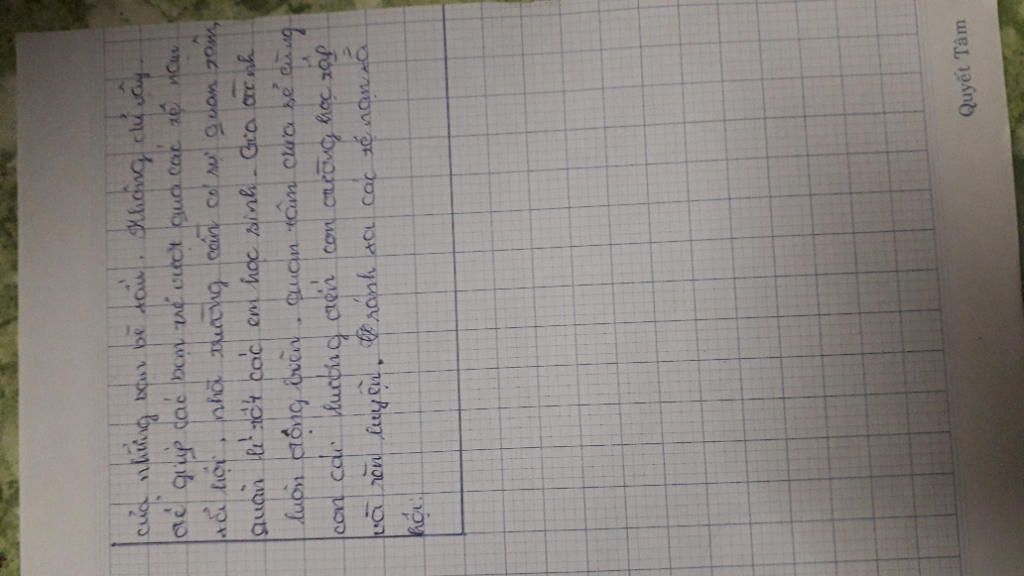 của những bạn bè xấu. Không chỉ vậy
để giúp các bạn trẻ vượt qua các tệ nạn
xã hội, nhà trường cần có sự quan tâm,
quản lí tốt các em học sinh. Gia đình
luôn động viên, quan tâm chia sẻ cùng
con cái hướng đến con đường học tập
và rèn luyện, tránh xa các tệ nạn xã
hội.
Quyết Tâm